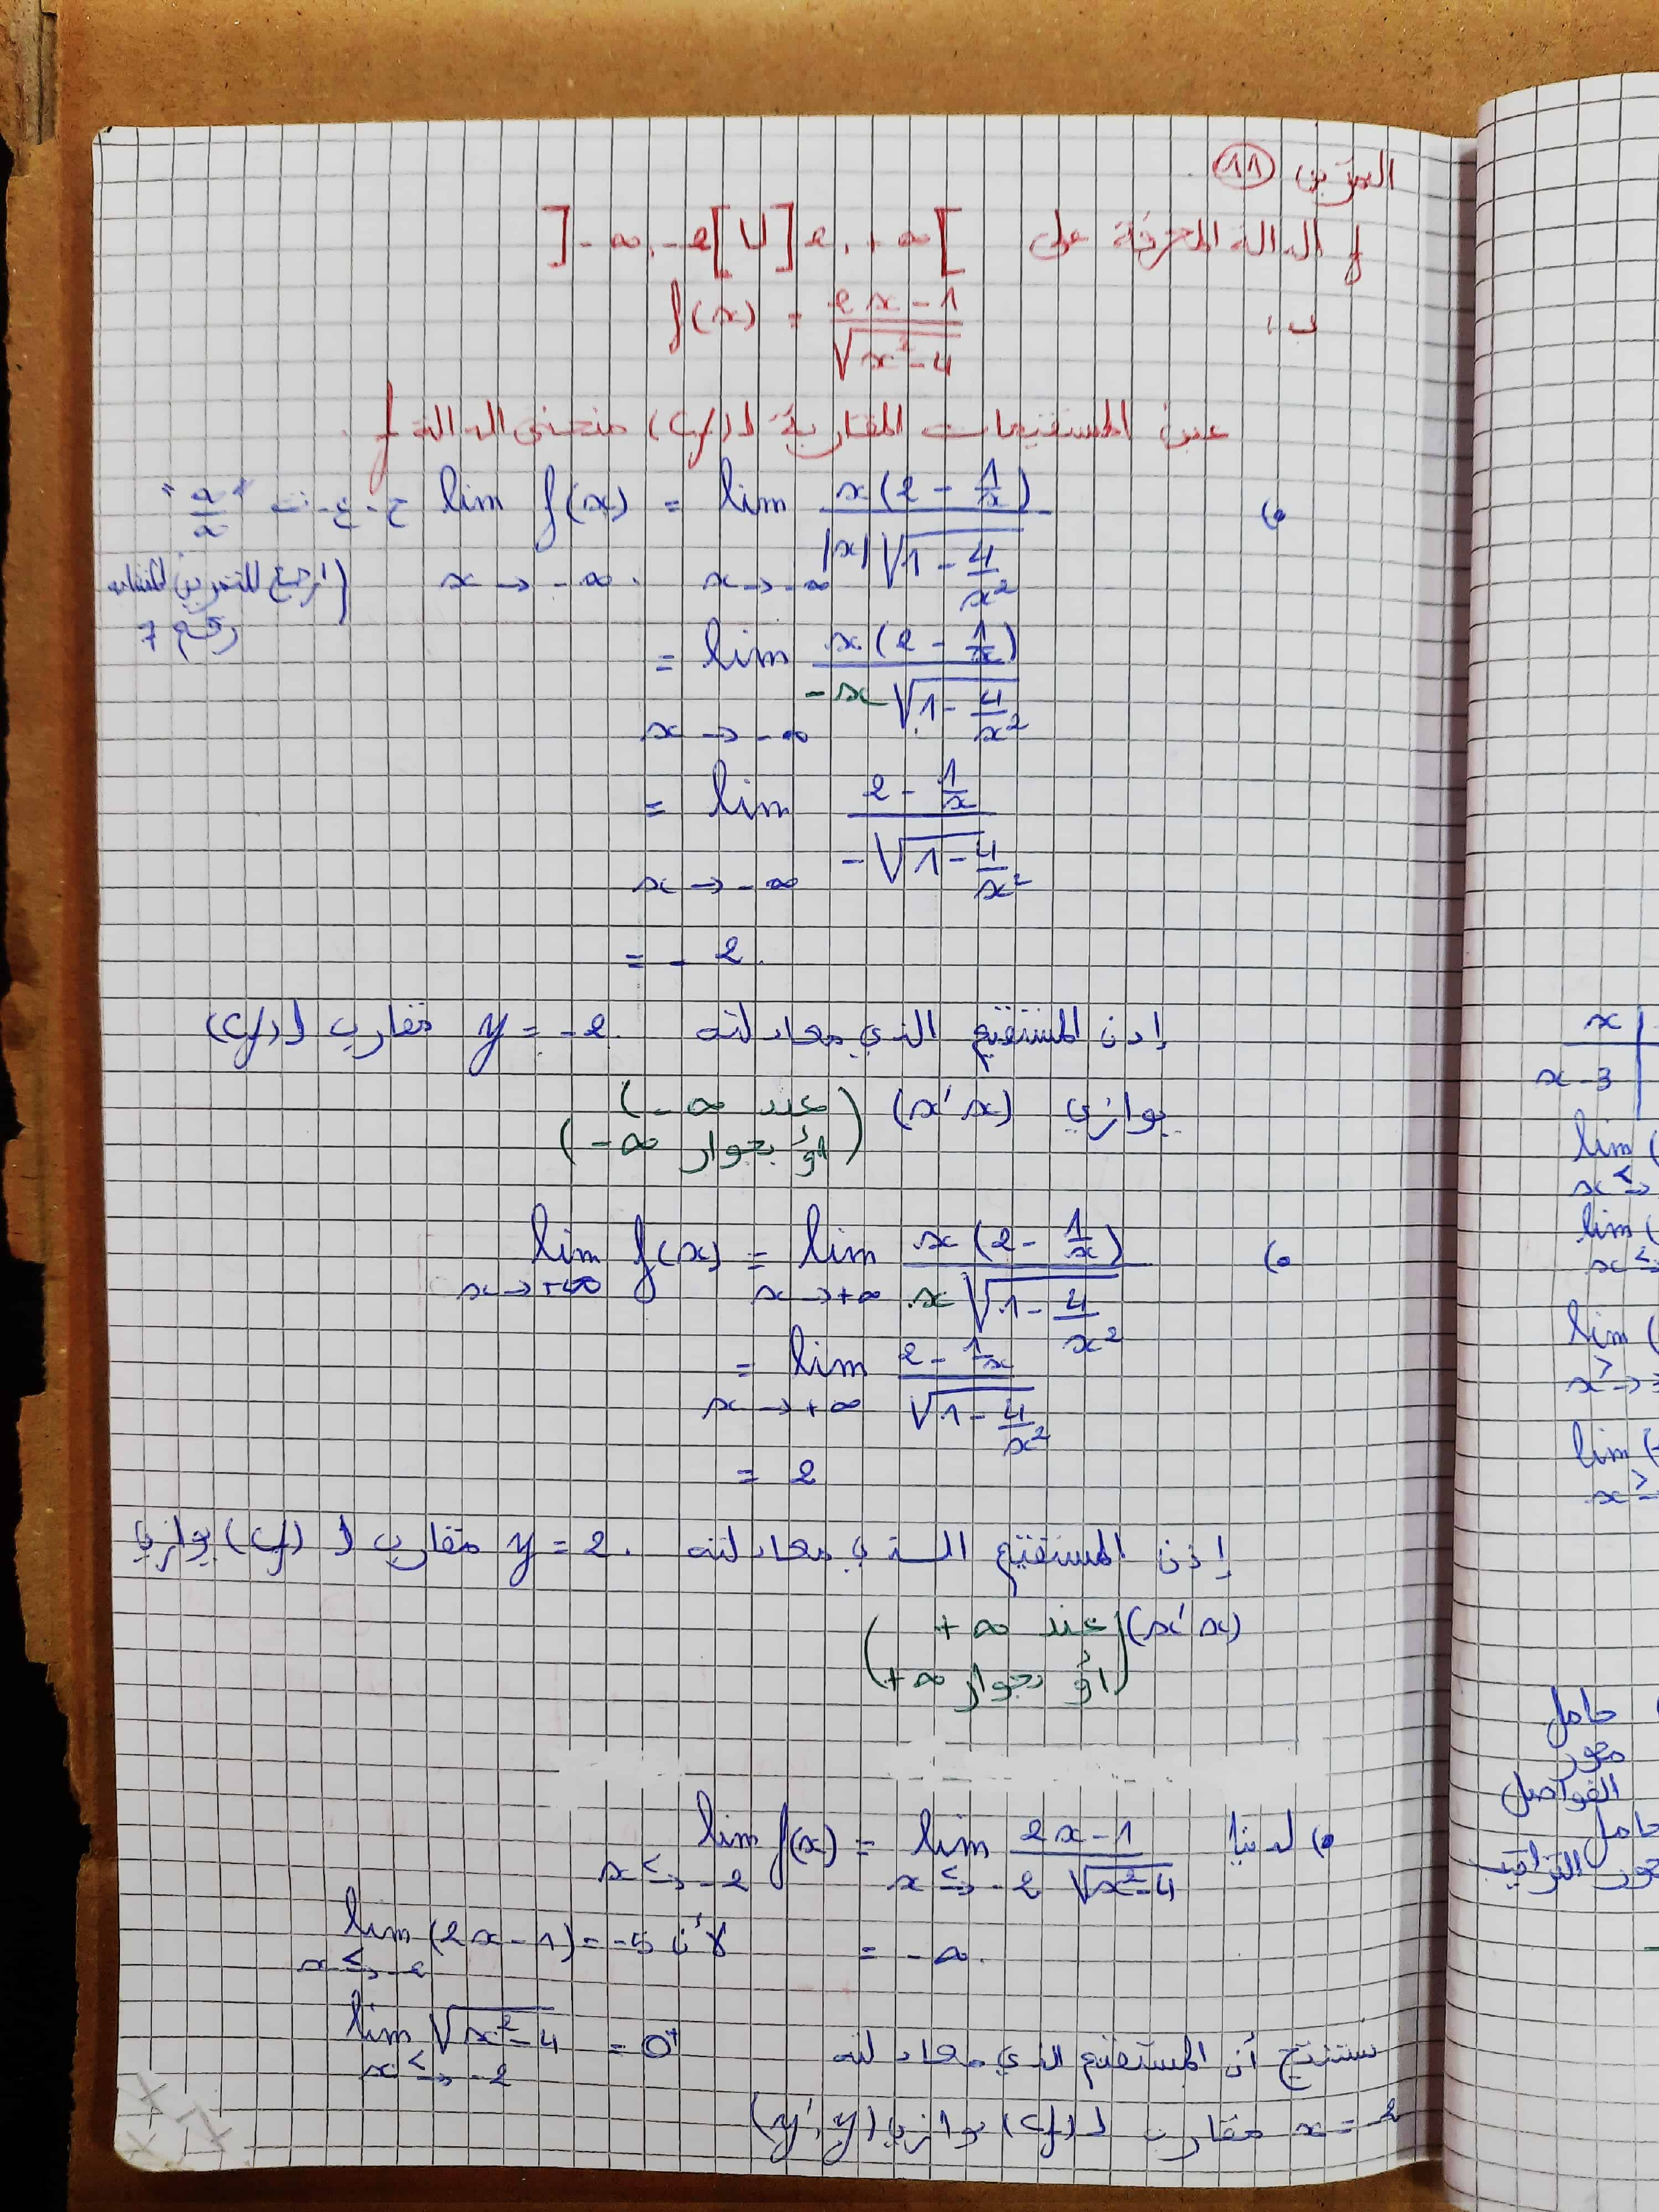 التمرين 11
f الدالة المعرفة على ]-∞, -2[ U ]2, +∞[
ب: f(x) = (2x-1)/√(x²-4)
عين المستقيمات المقاربة لـ (Cf) منحنى الدالة f.
•) lim x→-∞ f(x) = lim x→-∞ x(2 - 1/x) / |x|√(1 - 4/x²) ح.ع.ت "∞/∞"
(ارجع للتمرين
رقم 7
= lim x→-∞ x(2 - 1/x) / -x√(1 - 4/x²)
= lim x→-∞ (2 - 1/x) / -√(1 - 4/x²)
= -2.
إذن المستقيم الذي معادلته y = -2 مقارب لـ (Cf)
يوازي (x'x) (عند -∞)
(أو بجوار -∞)
•) lim x→+∞ f(x) = lim x→+∞ x(2 - 1/x) / x√(1 - 4/x²)
= lim x→+∞ (2 - 1/x) / √(1 - 4/x²)
= 2
إذن المستقيم الذي معادلته y = 2 مقارب لـ (Cf) يوازي
(x'x) (عند +∞
أو بجوار +∞)
•) لدينا lim x→<-2 f(x) = lim x→<-2 (2x-1)/√(x²-4)
= -∞. لأن lim x→<-2 (2x-1) = -5
lim x→<-2 √(x²-4) = 0⁺
نستنتج أن المستقيم الذي معادلته
x = -2 مقارب لـ (Cf) يوازي (y'y)
x
x-3
lim (
x→<
lim (
x→<
lim (
x→>
lim (
x→>
حامل
محور
الفواصل
حامل
محور التراتيب